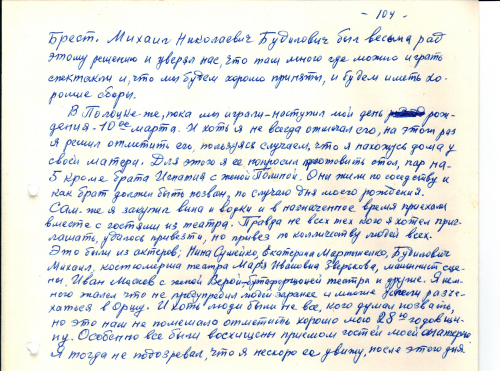 - 104 -
Брест. Михаил Николаевич Будилович был весьма рад
этому решению и уверял нас, что там много где можно играть
спектакли и, что мы будем хорошо приняты, и будем иметь хо-
рошие сборы.
В Полоцке-же, пока мы играли - наступил мой день рож-
дения - 10ое марта. И хоть я не всегда отмечал его, на этот раз
я решил отметить его, пользуясь случаем, что я нахожусь дома у
своей матери. Для этого я ее попросил приготовить стол, пар на-
5 кроме брата Игнатия с женой Полиной. Они жили по соседству и
как брат должен быть позван, по случаю дня моего рождения.
Сам-же я закупил вина и водки и в назначенное время приехали
вместе с гостями из театра. Правда не всех тех кого я хотел приг-
лашать, удалось привезти, но привез по количеству людей всех.
Это были из актеров; Нина Сумейко, Екатерина Мартыненко, Будилович
Михаил, костюмерша театра Мария Ивановна Зверькова, машинист сце-
ны, Иван Мысаев с женой Верой - бутафорщицей театра и другие. Я нем-
ного жалел что не предупредил людей заранее и многие успели разъе-
хаться в Оршу. И хоть люди были не все, кого думал позвать,
но это нам не помешало отметить хорошо мою 28ю годовщи-
ну. Особенно все были восхищены приемом гостей моей матерью
Я тогда не подозревал, что я нескоро ее увижу, после этого дня